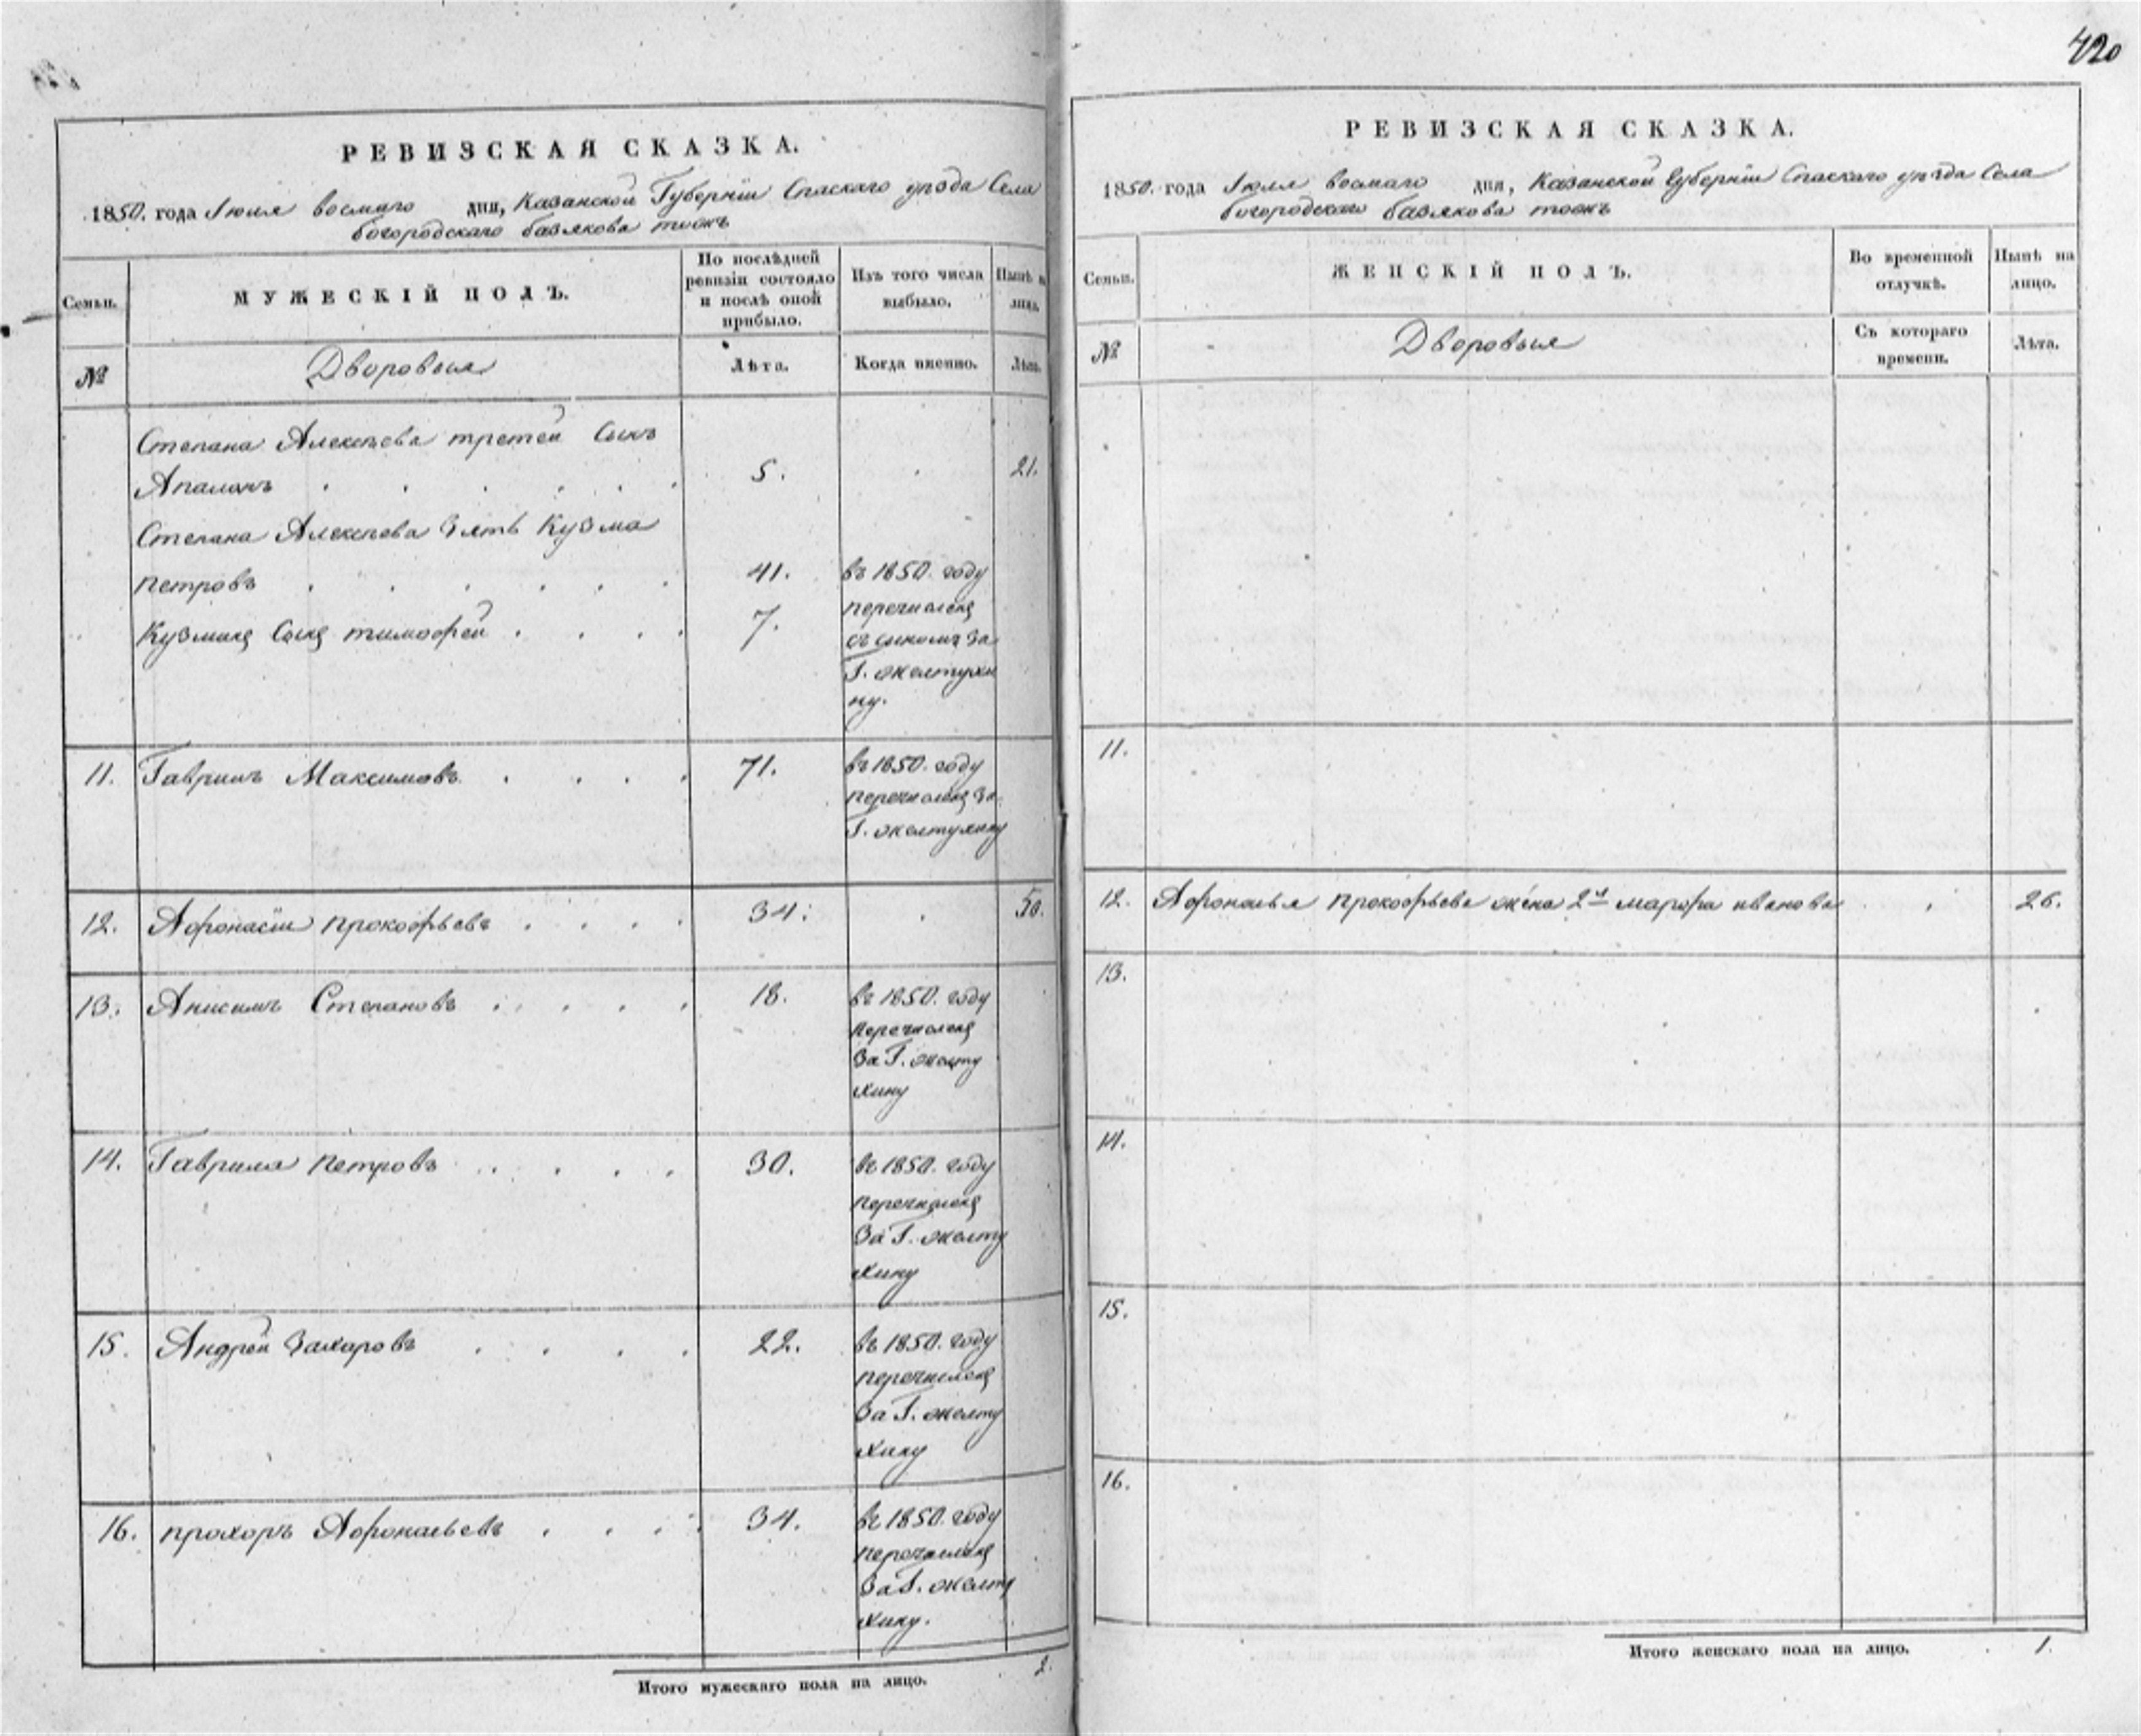 420
РЕВИЗСКАЯ СКАЗКА.
1850. года Іюля восмаго дня, Казанской Губерніи Спаскаго уѣзда Села
богородскаго базякова тожъ
Семьи.
МУЖЕСКІЙ ПОЛЪ.
По послѣдней
ревизіи состояло
и послѣ оной
прибыло.
Изъ того числа
выбыло.
Нынѣ на
лицо.
№
Дворовыя
Лѣта.
Когда именно.
Лѣта.
Степана Алексѣева третей Сынъ
Апалонъ 5. 21.
Степана Алексѣева Зять Кузма
петровъ 41. въ 1850. году
перечислена
съ сыномъ За
Г. желтухи
ну.
Кузмина Сына тимофей 7.
11. Гаврилъ Максимовъ 71. въ 1850. году
перечислена За
Г. желтухину
12. Афонасіи прокофьевъ 34. 50.
13. Анисимъ Степановъ 18. въ 1850. году
перечислена
За Г. желту
хину
14. Гаврила петровъ 30. въ 1850. году
перечислена
За Г. желту
хину
15. Андрей Захаровъ 22. въ 1850. году
перечислена
За Г. желту
хину
16. прохоръ Афонасьевъ 34. въ 1850. году
перечислена
За Г. желту
хину.
Итого мужескаго пола на лицо. 2.
РЕВИЗСКАЯ СКАЗКА.
1850. года Іюля восмаго дня, Казанской Губерніи Спаскаго уѣзда Села
богородскаго базякова тожъ
Семьи.
ЖЕНСКІЙ ПОЛЪ.
Во временной
отлучкѣ.
Нынѣ на
лицо.
№
Дворовыя
Съ котораго
времени.
Лѣта.
11.
12. Афонасья прокофьева жена 2я марфа иванова 26.
13.
14.
15.
16.
Итого женскаго пола на лицо. 1.